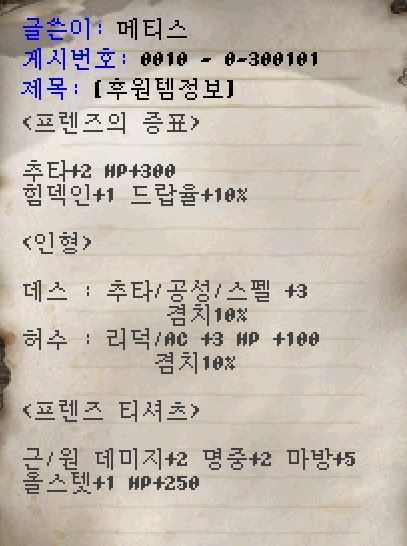 글쓴이: 메티스
게시번호: 0010 - 0-300101
제목: [후원템정보]
<프렌즈의 증표>
추타+2 HP+300
힘덱인+1 드랍율+10%
<인형>
데스 : 추타/공성/스펠 +3
겸치10%
허수 : 리덕/AC +3 HP +100
겸치10%
<프렌즈 티셔츠>
근/원 데미지+2 명중+2 마방+5
홀스텟+1 HP+250